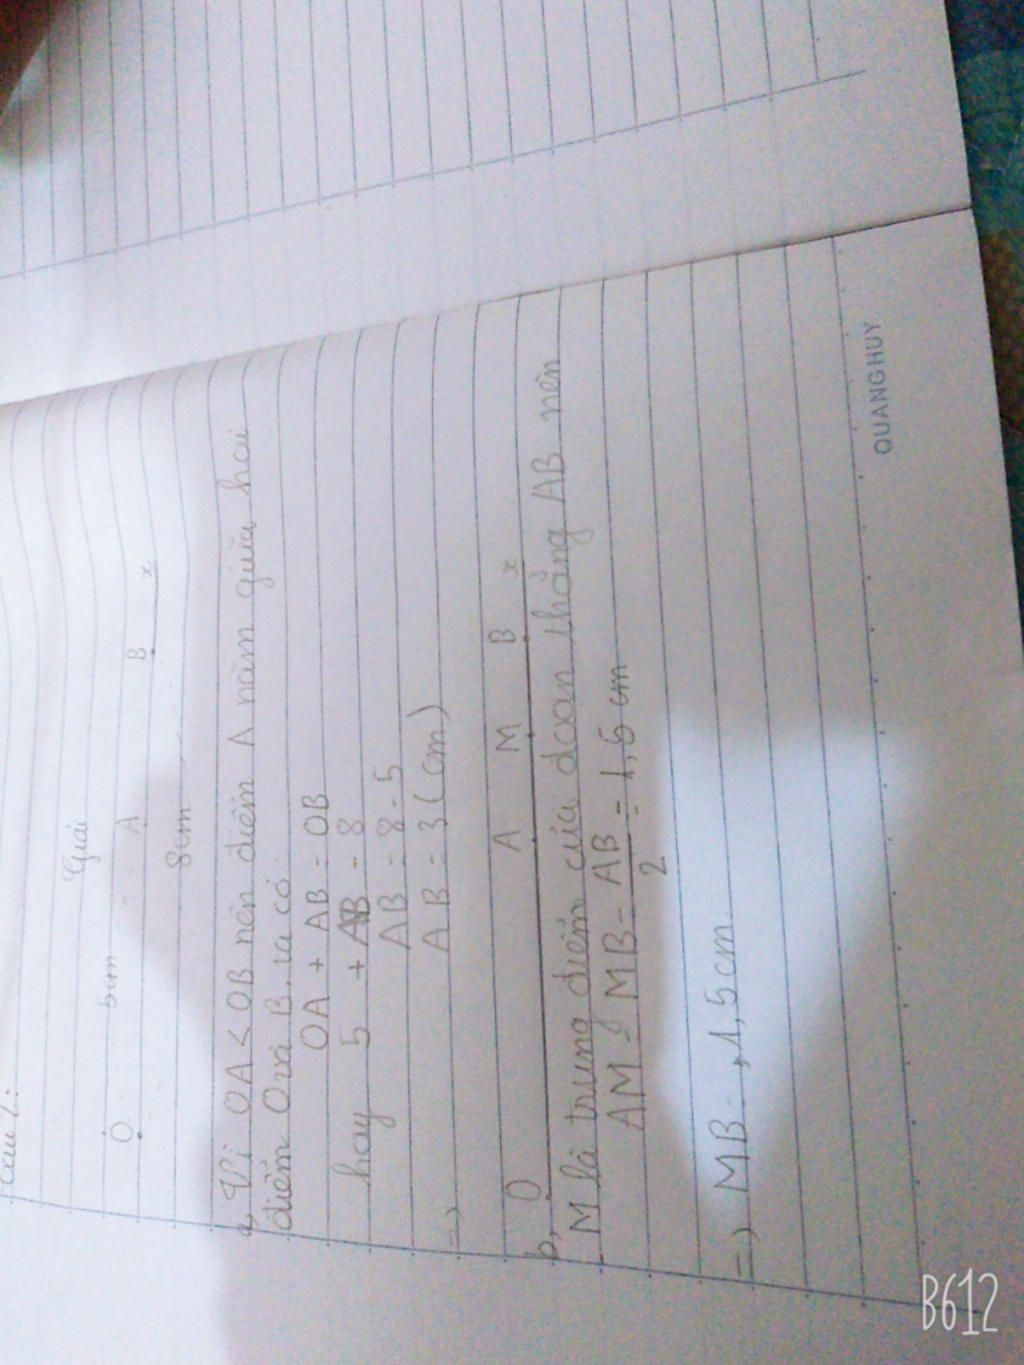 Câu 2:
Giải
O 5cm A B x
8cm
a, Vì OA < OB nên điểm A nằm giữa hai
điểm O và B. ta có
OA + AB = OB
hay 5 + AB = 8
AB = 8 - 5
=) AB = 3 (cm)
O A M B x
b, M là trung điểm của đoạn thẳng AB nên
AM = MB = AB/2 = 1,5 cm
=) MB = 1,5cm.
QUANG HUY
B612